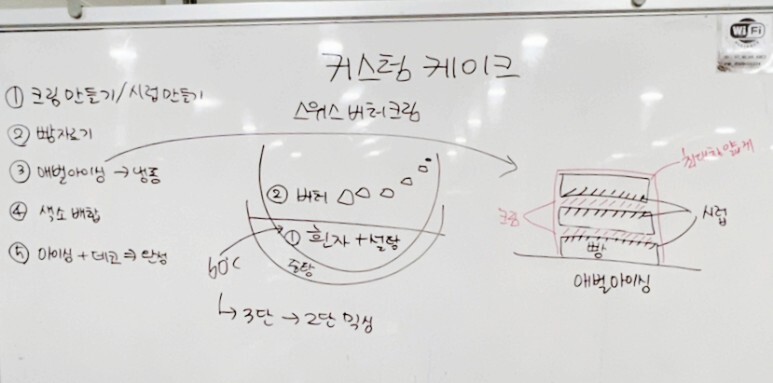 WiFi
커스텀 케이크
① 크림 만들기/시럽 만들기
② 빵자르기
③ 애벌아이싱 → 냉동
④ 색소 배합
⑤ 아이싱 + 데코 ⇒ 완성
스위스 버터크림
② 버터
① 흰자 + 설탕
60℃
중탕
↳ 3단 → 2단 믹싱
최대한 얇게
크림
시럽
빵
애벌아이싱